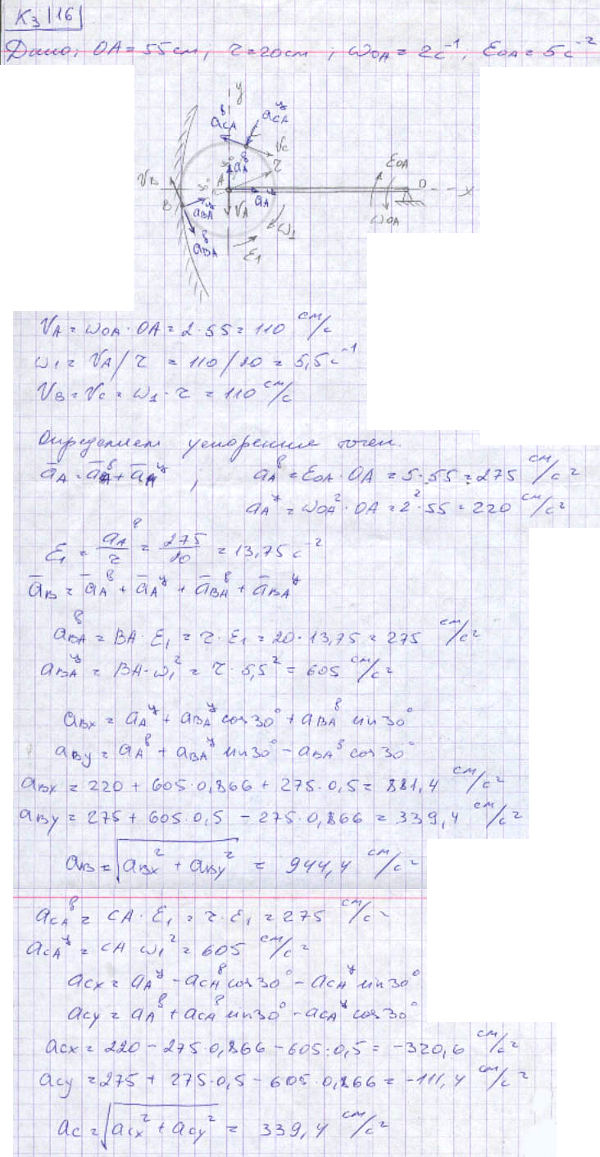 К3 |16|
Дано: OA = 55 см, r = 20 см, ω_OA = 2 c⁻¹, ε_OA = 5 c⁻²
y
a_CA^в
a_CA^ц
C
V_C
30°
a_A^в
r
V_B
30°
A
a_A^ц
B
a_BA^ц
V_A
ω_1
ε_1
a_BA^в
ε_OA
O
x
ω_OA
V_A = ω_OA · OA = 2 · 55 = 110 см/с
ω_1 = V_A / r = 110 / 20 = 5,5 c⁻¹
V_B = V_C = ω_1 · r = 110 см/с
Определяем ускорения точек.
ā_A = ā_A^в + ā_A^ц , a_A^в = ε_OA · OA = 5 · 55 = 275 см/с²
a_A^ц = ω_OA² · OA = 2² · 55 = 220 см/с²
ε_1 = a_A^в / r = 275 / 20 = 13,75 c⁻²
ā_B = ā_A^в + ā_A^ц + ā_BA^в + ā_BA^ц
a_BA^в = BA · ε_1 = r · ε_1 = 20 · 13,75 = 275 см/с²
a_BA^ц = BA · ω_1² = r · 5,5² = 605 см/с²
a_Bx = a_A^ц + a_BA^ц cos30° + a_BA^в sin30°
a_By = a_A^в + a_BA^ц sin30° - a_BA^в cos30°
a_Bx = 220 + 605 · 0,866 + 275 · 0,5 = 881,4 см/с²
a_By = 275 + 605 · 0,5 - 275 · 0,866 = 339,4 см/с²
a_B = √(a_Bx² + a_By²) = 944,4 см/с²
a_CA^в = CA · ε_1 = r · ε_1 = 275 см/с²
a_CA^ц = CA · ω_1² = 605 см/с²
a_Cx = a_A^ц - a_CA^в cos30° - a_CA^ц sin30°
a_Cy = a_A^в + a_CA^в sin30° - a_CA^ц cos30°
a_Cx = 220 - 275 · 0,866 - 605 · 0,5 = -320,6 см/с²
a_Cy = 275 + 275 · 0,5 - 605 · 0,866 = -111,4 см/с²
a_C = √(a_Cx² + a_Cy²) = 339,4 см/с²